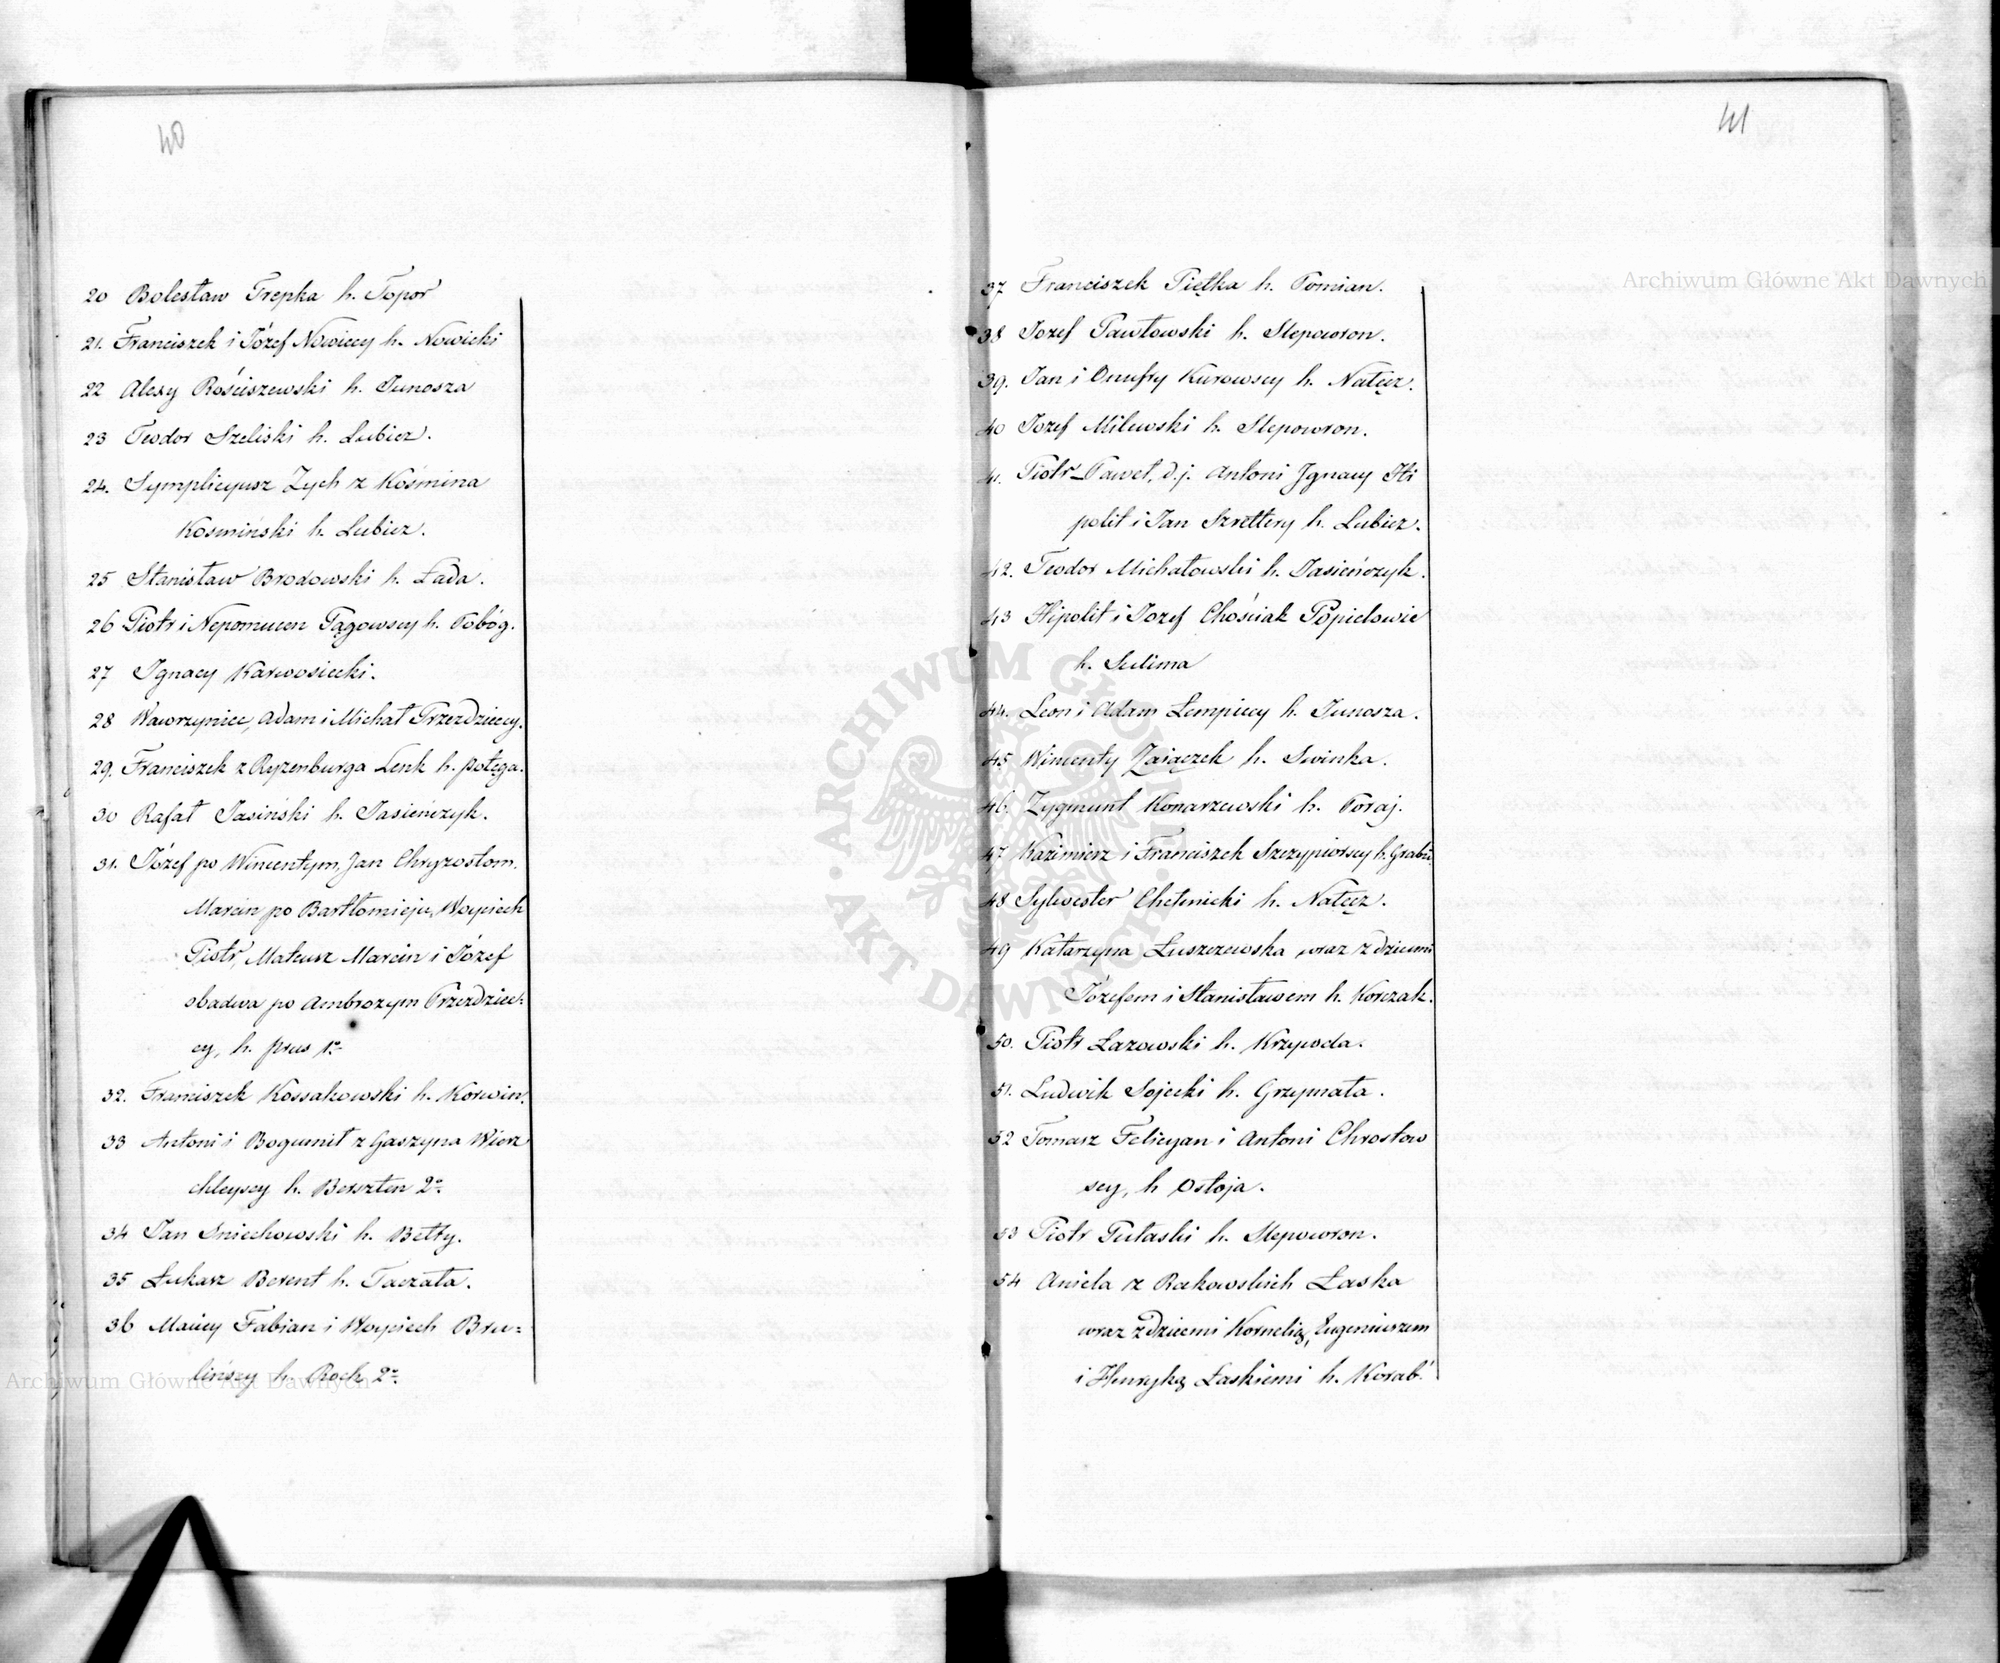 40
20 Bolesław Trepka h. Topor
21. Franciszek i Józef Nowiccy h. Nowicki
22 Alexy Rościszewski h. Junosza
23 Teodor Szeliski h. Lubicz.
24. Symplicyusz Zych z Kośmina
Kosmiński h. Lubicz.
25 Stanisław Brodowski h. Łada.
26 Piotr i Nepomucen Pągowscy h. Pobóg.
27 Ignacy Karwosiecki.
28 Wawrzyniec, Adam i Michał Przezdzieccy.
29. Franciszek z Ryzenburga Lenk h. potęga.
30 Rafał Jasiński h. Jasieńczyk.
31. Józef po Wincentym, Jan Chryzostom.
Marcin po Bartłomieju, Woyciech
Piotr, Mateusz Marcin i Józef
obadwa po Ambrozym Przezdziec=
cy, h. prus 1º
32. Franciszek Kossakowski h. Korwin.
33 Antoni i Bogumił z Gaszyna Wierz
chleyscy h. Berszten 2º
34 Jan Sniechowski h. Bełty.
35 Łukasz Berent h. Taczała.
36 Maucy Fabian i Woyciech Bru=
lińscy h. Roch 2º
41
37. Franciszek Piętka h. Pomian.
38 Jozef Pawłowski h. Slepowron.
39. Jan i Onufry Kurowscy h. Nałęcz.
40 Jozef Milewski h. Slepowron.
41. Piotr_Paweł, d.j. Antoni Ignacy Hi
polit i Jan Szrettery h. Lubicz.
42. Teodor Michałowski h. Jasieńczyk.
43 Hipolit i Jozef Chościak Popielowie
h. Sulima
44. Leon i Adam Łempiccy h. Junosza.
45 Wincenty Zaiączek h. Swinka.
46. Zygmunt Konarzewski h. Poraj.
47 Kazimierz i Franciszek Szczypiorscy h. Grabie.
48 Sylwester Chełmicki h. Nałęcz.
49 Katarzyna Łuszczewska wraz z dziecmi
Józefem i Stanisławem h. Korczak.
50. Piotr Łazowski h. Krzywda.
51. Ludwik Sojecki h. Grzymała.
52 Tomasz Felicyan i Antoni Chrostow
scy, h Ostoja.
53 Piotr Pułaski h. Slepowron.
54 Aniela z Rakowskich Łaska
wraz z dziecmi Kornelią, Eugeniuszem
i Henryką Łaskiemi h. Korab.
Archiwum Główne Akt Dawnych
ARCHIWUM GŁÓWNE · AKT DAWNYCH ·
Archiwum Główne Akt Dawnych